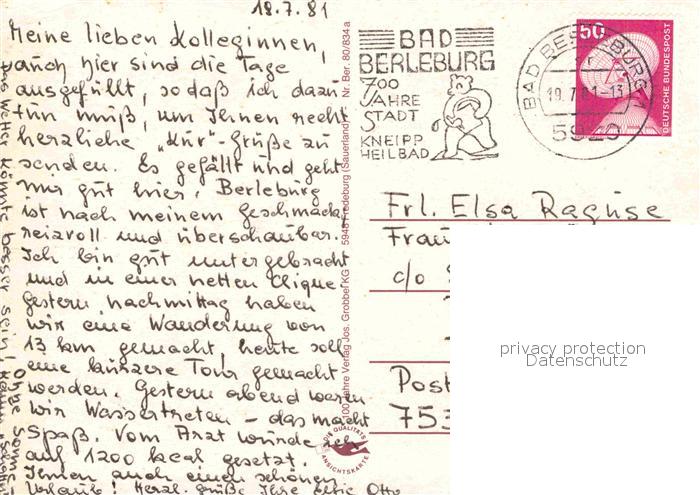 18.7.81
Meine lieben Kolleginnen,
auch hier sind die Tage
ausgefüllt, sodaß ich dazu
tun muß, um Ihnen recht
herzliche "Kur"-Grüße zu
senden. Es gefällt und geht
mir gut hier. Berleburg
ist nach meinem Geschmack
reizvoll und überschaubar.
Ich bin gut untergebracht
und in einer netten Clique.
Gestern nachmittag haben
wir eine Wanderung von
13 km gemacht, heute soll
eine kürzere Tour gemacht
werden. Gestern abend waren
wir Wassertreten - das macht
Spaß. Vom Arzt wurde ich
auf 1200 kcal gesetzt.
Ihnen auch einen schönen
Urlaub! Herzl. Grüße Ihre Otto
Das Wetter könnte besser sein!
Ohne Sonne
100 Jahre Verlag Jos. Grobbel KG 5948 Fredeburg (Sauerland) Nr. Ber. 80/834a
DIE QUALITÄTS
ANSICHTSKARTE
BAD
BERLEBURG
700
JAHRE
STADT
KNEIPP
HEILBAD
BAD BERLEBURG 1
19.7.81-13
5920
50
DEUTSCHE BUNDESPOST
Frl. Elsa Raguse
Frau
c/o
Post
753
privacy protection
Datenschutz